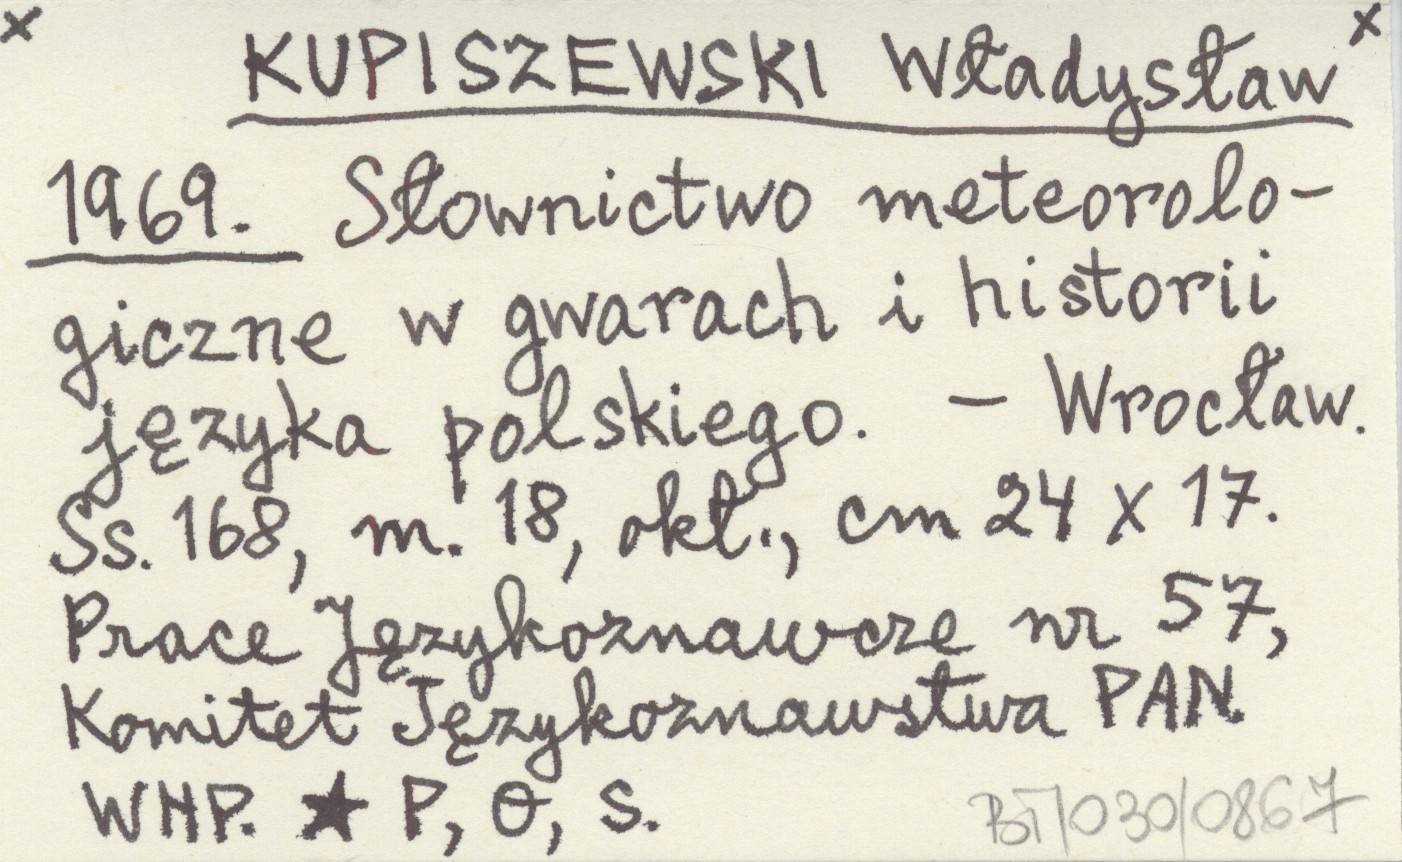 x KUPISZEWSKI Władysław x
1969. Słownictwo meteorolo-
giczne w gwarach i historii
języka polskiego. – Wrocław.
Ss. 168, m. 18, okł., cm 24 x 17.
Prace Językoznawcze nr 57,
Komitet Językoznawstwa PAN.
WHP. ★ P, O, S.
BT/030/0867